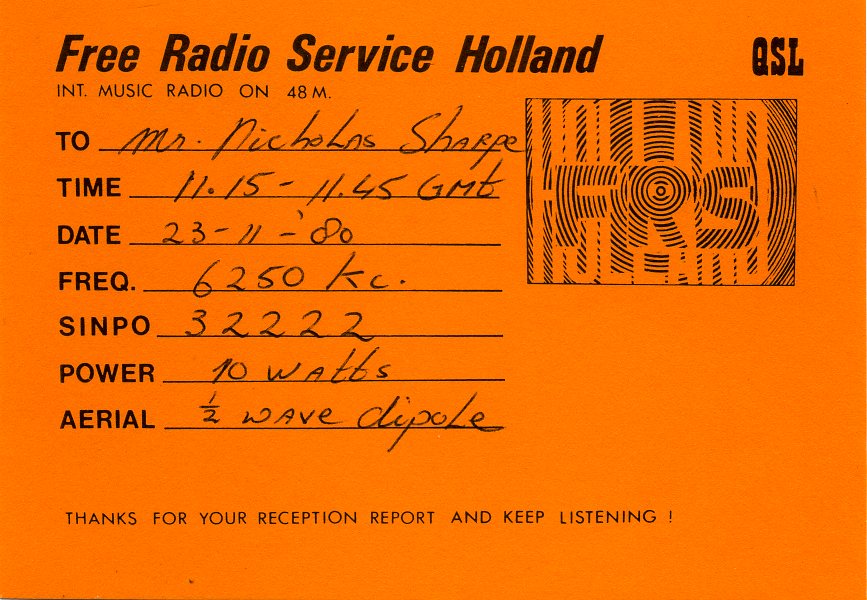 Free Radio Service Holland
QSL
INT. MUSIC RADIO ON 48 M.
TO Mr. Nicholas Sharpe
TIME 11.15 - 11.45 GMt
DATE 23-11-'80
FREQ. 6250 kc.
FRS
SINPO 32222
POWER 10 watts
AERIAL 1/2 wave dipole
THANKS FOR YOUR RECEPTION REPORT AND KEEP LISTENING !